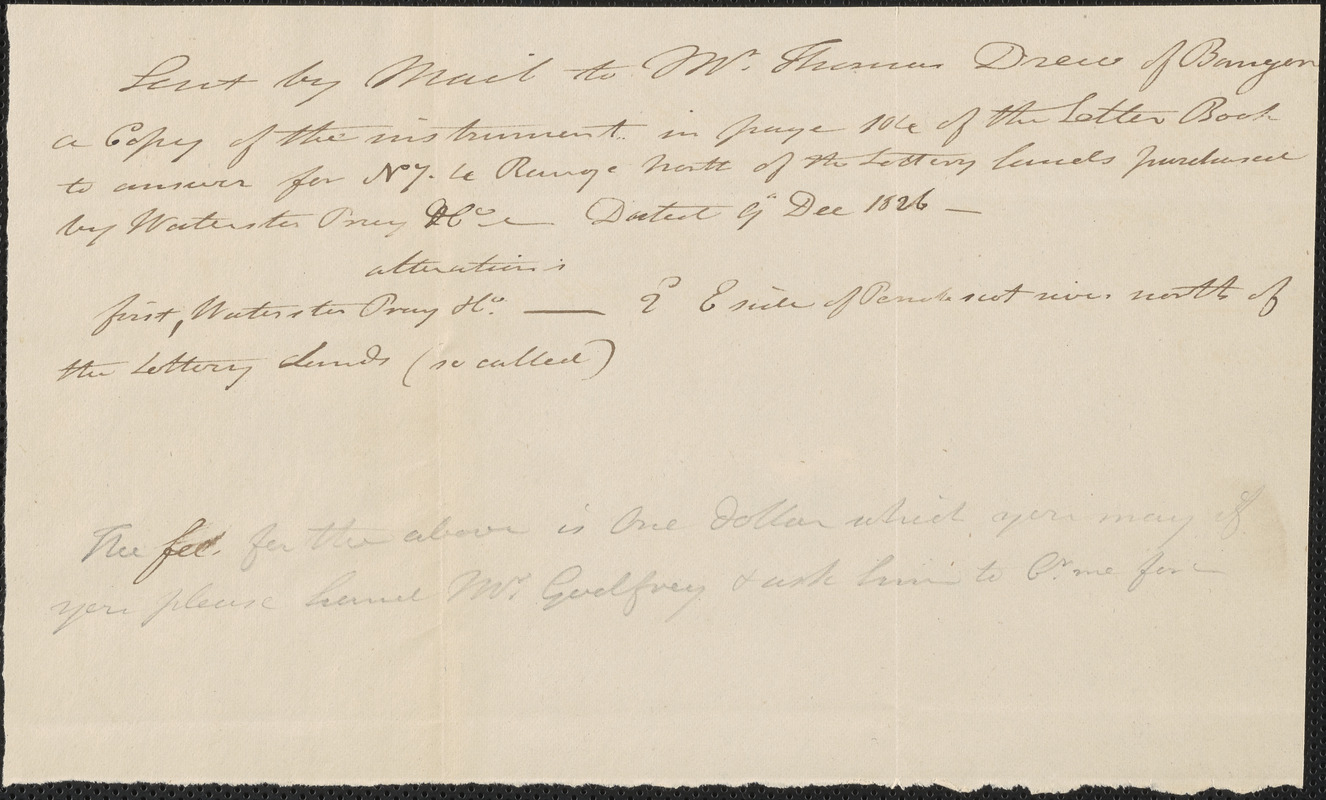 Sent by Mail to Mr. Thomas Drew of Bangor
a Copy of the instrument in page 104 of the Letter Book
to answer for No 7. 4 Range North of the Lottery lands purchased
by Waterston Pray &Co Dated 9th Dec 1826 —
alterations
first, Waterston Pray &Co. — 2d E side of Penobscot river north of
the Lottery Lands (so called)
The fee for the above is One dollar which you may if
you please hand Mr. Godfrey & ask him to Cr. me for